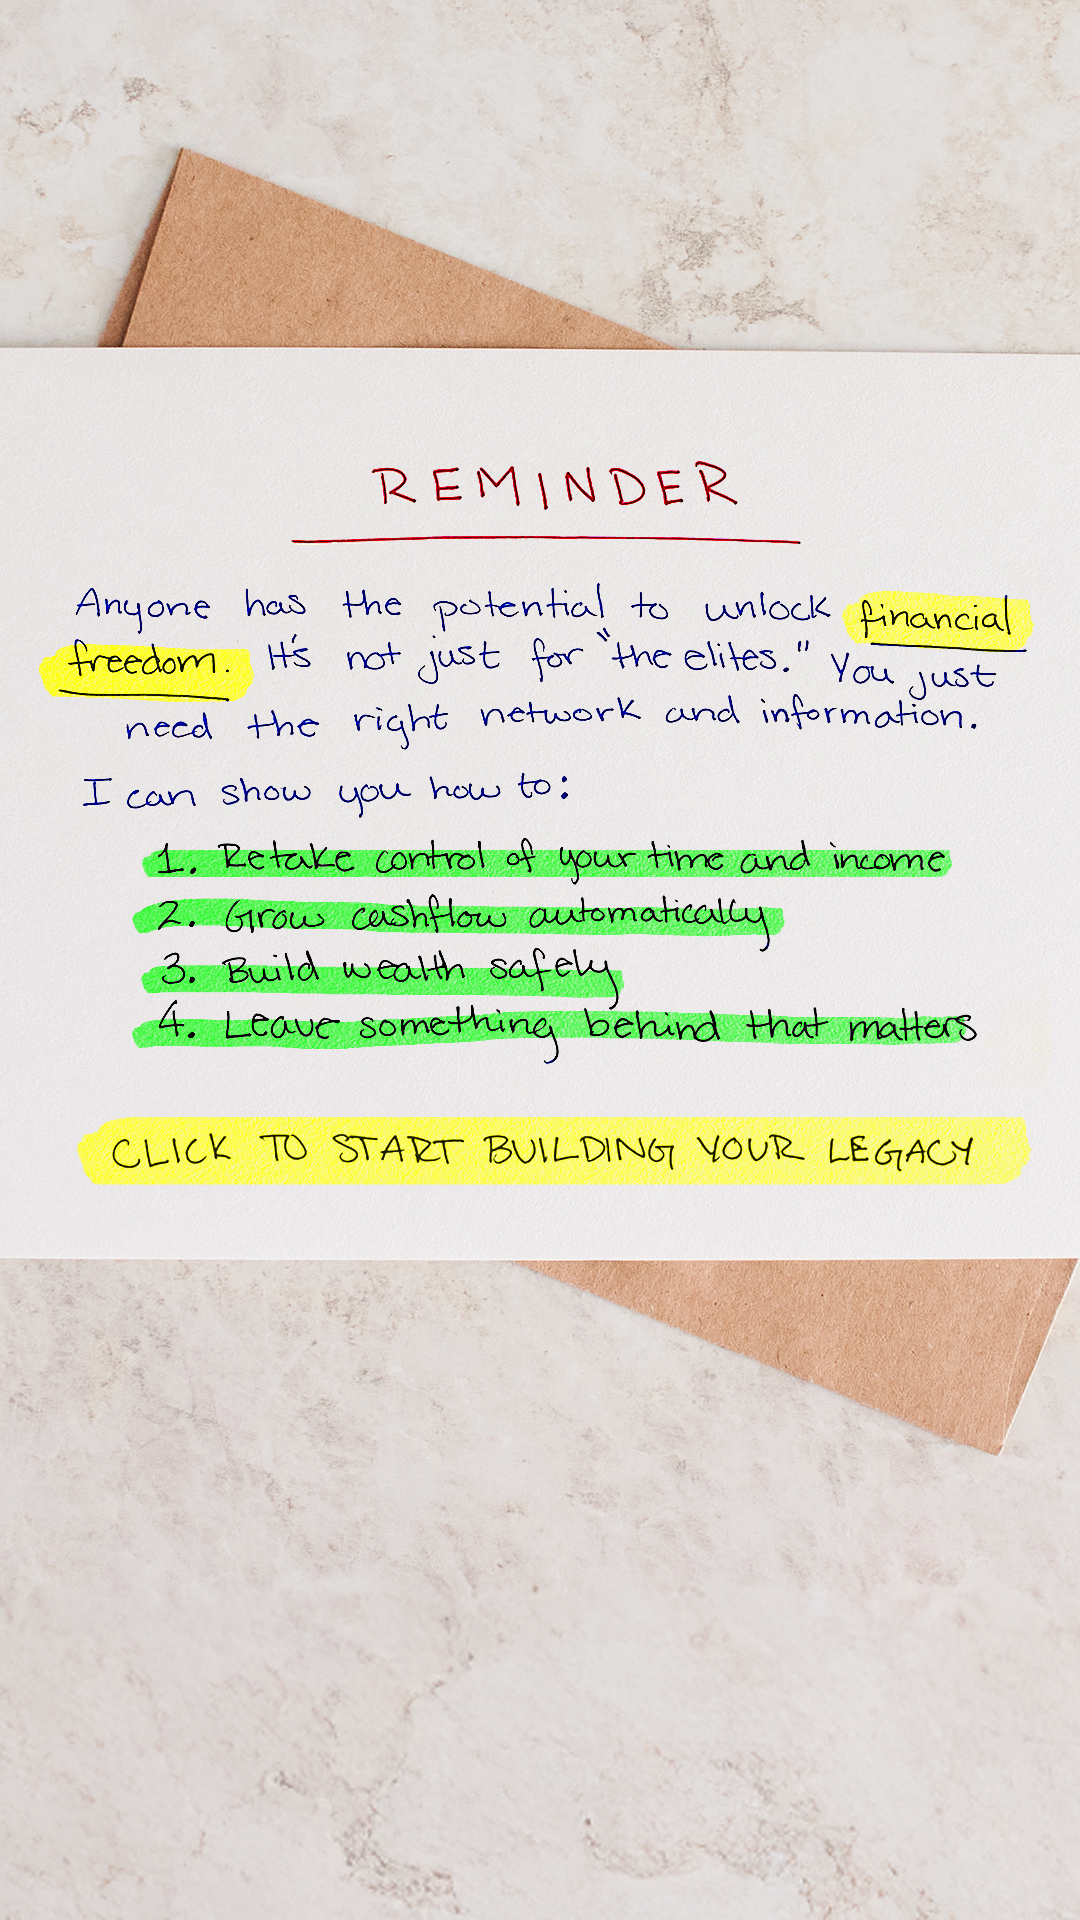 REMINDER
Anyone has the potential to unlock financial
freedom. It's not just for "the elites." You just
need the right network and information.
I can show you how to:
1. Retake control of your time and income
2. Grow cashflow automatically
3. Build wealth safely
4. Leave something behind that matters
CLICK TO START BUILDING YOUR LEGACY